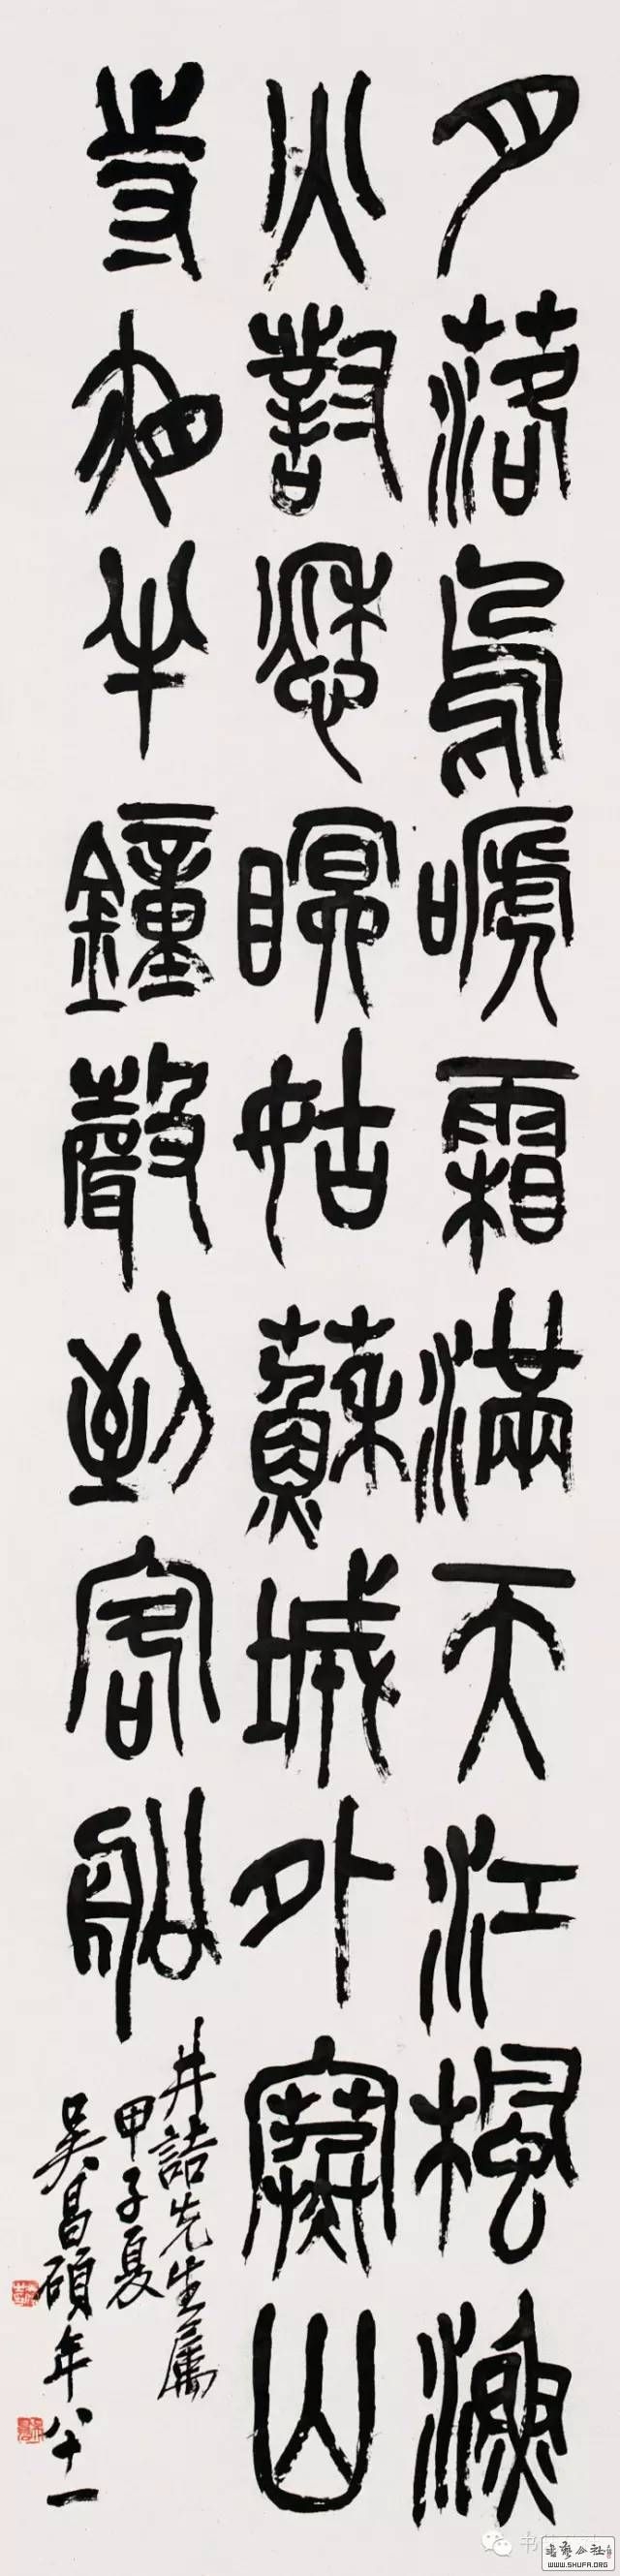 月落烏嗁霜滿天江楓漁
火對愁瞑姑蘇城外寒山
寺夜半鐘聲到客船
井詰先生屬
甲子夏
吳昌碩年八十一
WWW.SHUFA.ORG